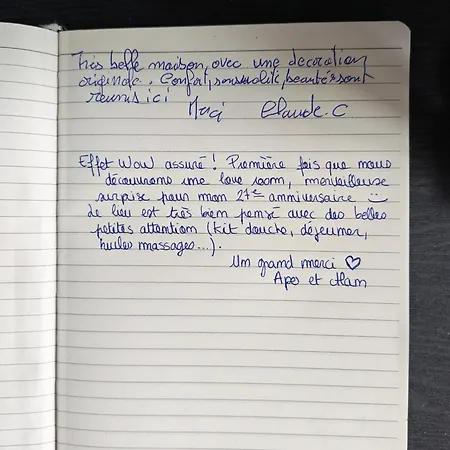 Très belle maison, avec une decoration
originale. Confort, sensualité, beauté sont
reunis ici
Merci Claude. C
Effet WOW assuré! Première fois que nous
découvrons une love room, merveilleuse
surprise pour mon 27e anniversaire
de lieu est très bien pensé avec des belles
petites attention (kit douche, déjeuner,
huiles massages...).
Un grand merci ♡
et